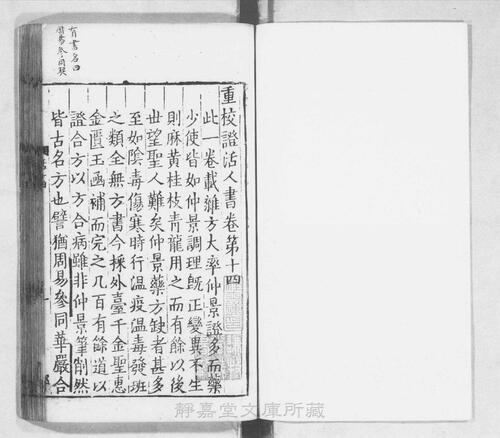 重校證活人書卷第十四
此一卷載雜方大率仲景證多而藥
少使皆如仲景調理旣正變異不生
則麻黃桂枝靑龍用之而有餘以後
世望聖人難矣仲景藥方缺者甚多
至如陰毒傷寒時行溫疫溫毒發班
之類全無方書今採外臺千金聖惠
金匱玉函補而完之凡百有餘道以
證合方以方合病雖非仲景筆削然
皆古名方也譬猶周易參同華嚴合
有書名曰
周易參同契
靜嘉堂文庫所藏